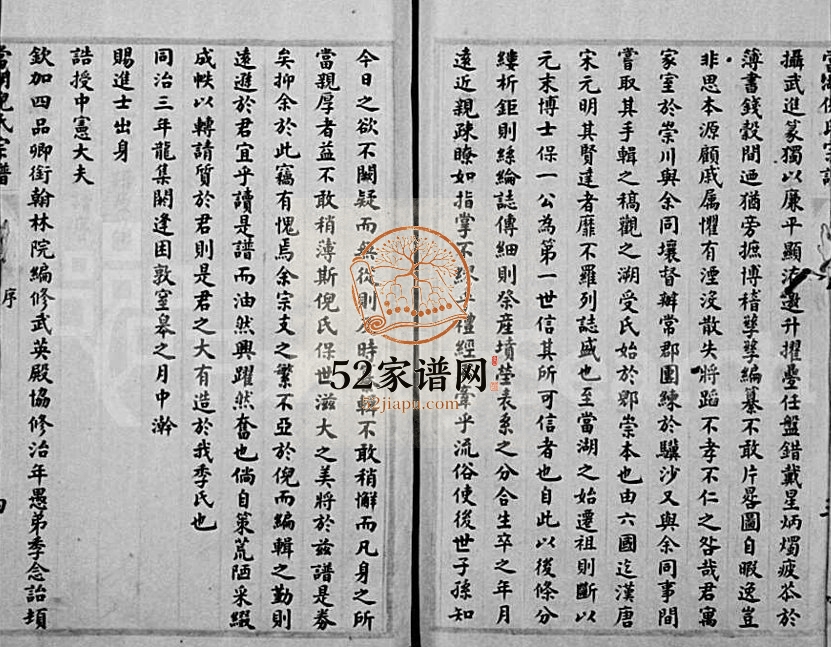 攝武進篆獨以廉平顯
升擢疊任盤錯戴星炳燭疲苶於
簿書錢穀間迺猶旁摭博稽孳孳編纂不敢片晷圖自暇逸豈
非思本源顧戚属懼有湮沒散失將蹈不孝不仁之咎哉君寓
家室於崇川與余同壤督辦常郡團練於驥沙又與余同事間
嘗取其手輯之稿觀之溯受氏始於郳崇本也由六國迄漢唐
宋元明其賢達者靡不羅列誌盛也至當湖之始遷祖則斷以
元末博士保一公為第一世信其所可信者也自此以後條分
縷析鉅則絲綸誌傳細則祭產墳塋表系之分合生卒之年月
遠近親疎瞭如指掌不
禮經
乎流俗使後世子孫知
今日之欲不闕疑而無從則
時
輯不敢稍懈而凡身之所
當親厚者益不敢稍薄斯倪氏保世滋大之美將於茲譜是券
矣抑余於此竊有愧焉余宗支之繁不亞於倪而編輯之勤則
遠遜於君宜乎讀是譜而油然興躍然奮也倘自策荒陋采綴
成帙以轉請質於君則是君之大有造於我季氏也
同治三年龍集閼逢困敦窒皋之月中澣
賜進士出身
誥授中憲大夫
欽加四品卿銜翰林院編修武英殿協修治年愚弟季念詒頓
當湖倪氏宗譜
序
52家谱网
52jiapu.com